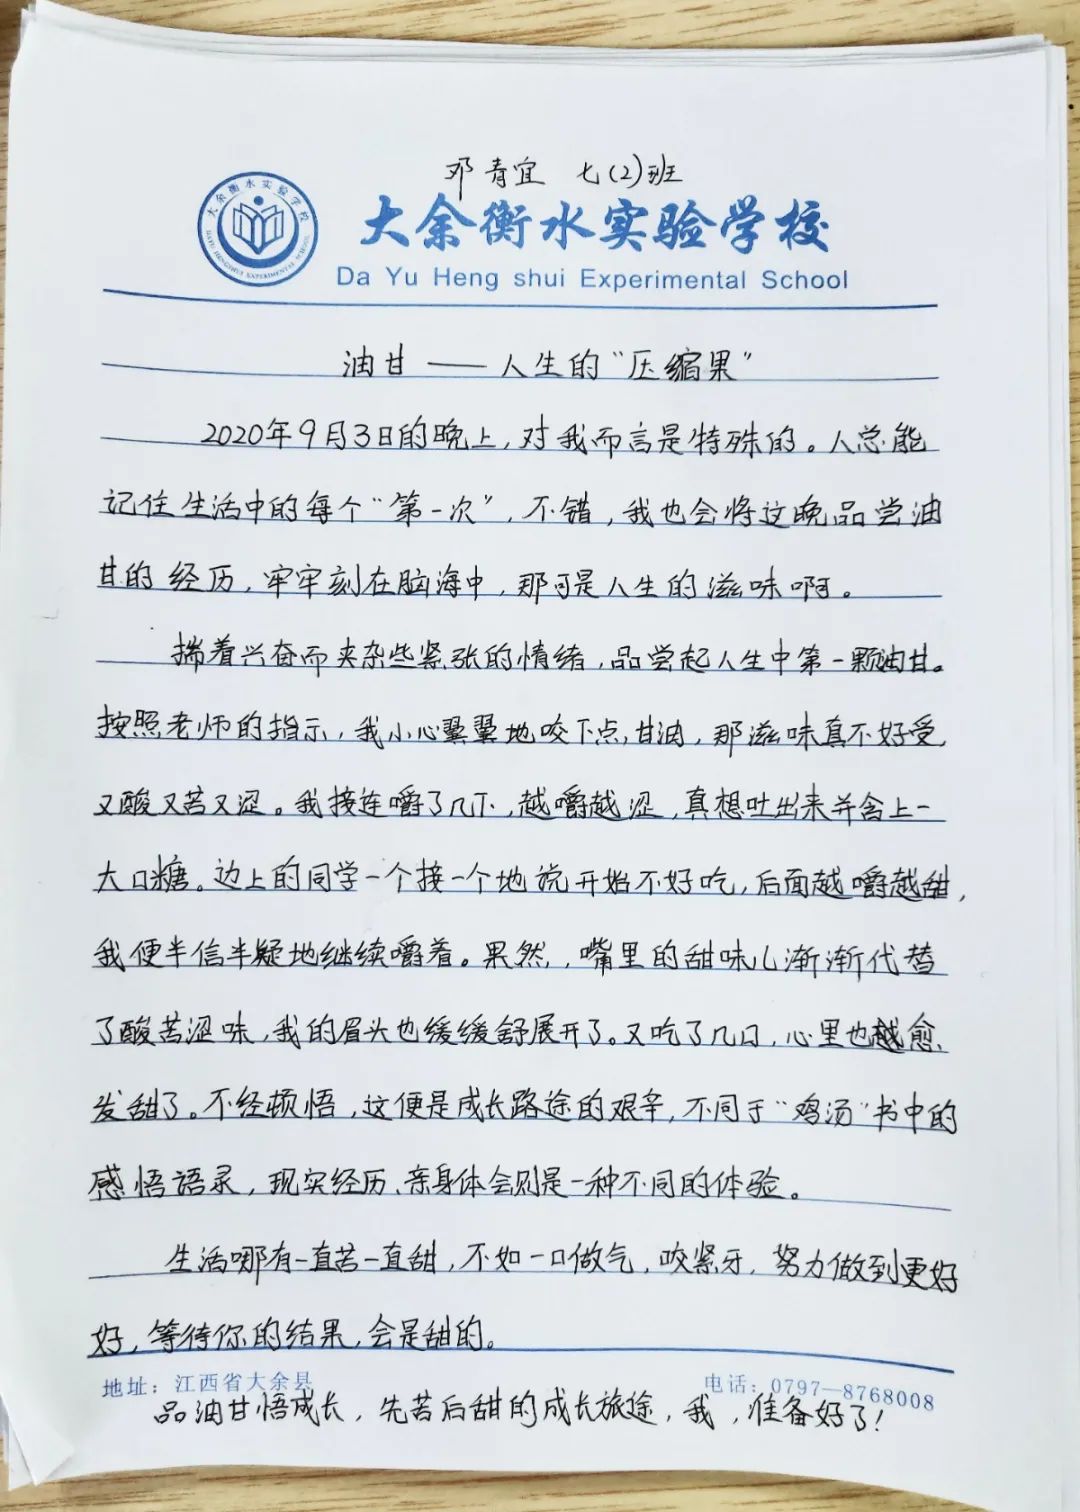 邓青宜 七(2)班
大余衡水实验学校
DAYU HENGSHUI EXPERIMENTAL SCHOOL
大余衡水实验学校
Da Yu Heng shui Experimental School
油甘——人生的“压缩果”
2020年9月3日的晚上,对我而言是特殊的。人总能
记住生活中的每个“第一次”,不错,我也会将这晚品尝油
甘的经历,牢牢刻在脑海中,那可是人生的滋味啊。
揣着兴奋而夹杂些紧张的情绪,品尝起人生中第一颗油甘。
按照老师的指示,我小心翼翼地咬下点甘油,那滋味真不好受,
又酸又苦又涩。我接连嚼了几下,越嚼越涩,真想吐出来并含上一
大口糖。边上的同学一个接一个地说开始不好吃,后面越嚼越甜,
我便半信半疑地继续嚼着。果然,嘴里的甜味儿渐渐代替
了酸苦涩味,我的眉头也缓缓舒展开了。又吃了几口,心里也越愈
发甜了。不经顿悟,这便是成长路途的艰辛,不同于“鸡汤”书中的
感悟语录,现实经历、亲身体会则是一种不同的体验。
生活哪有一直苦一直甜,不如一口做气,咬紧牙,努力做到更好
好,等待你的结果,会是甜的。
地址:江西省大余县 电话:0797—8768008
品油甘悟成长,先苦后甜的成长旅途,我,准备好了!